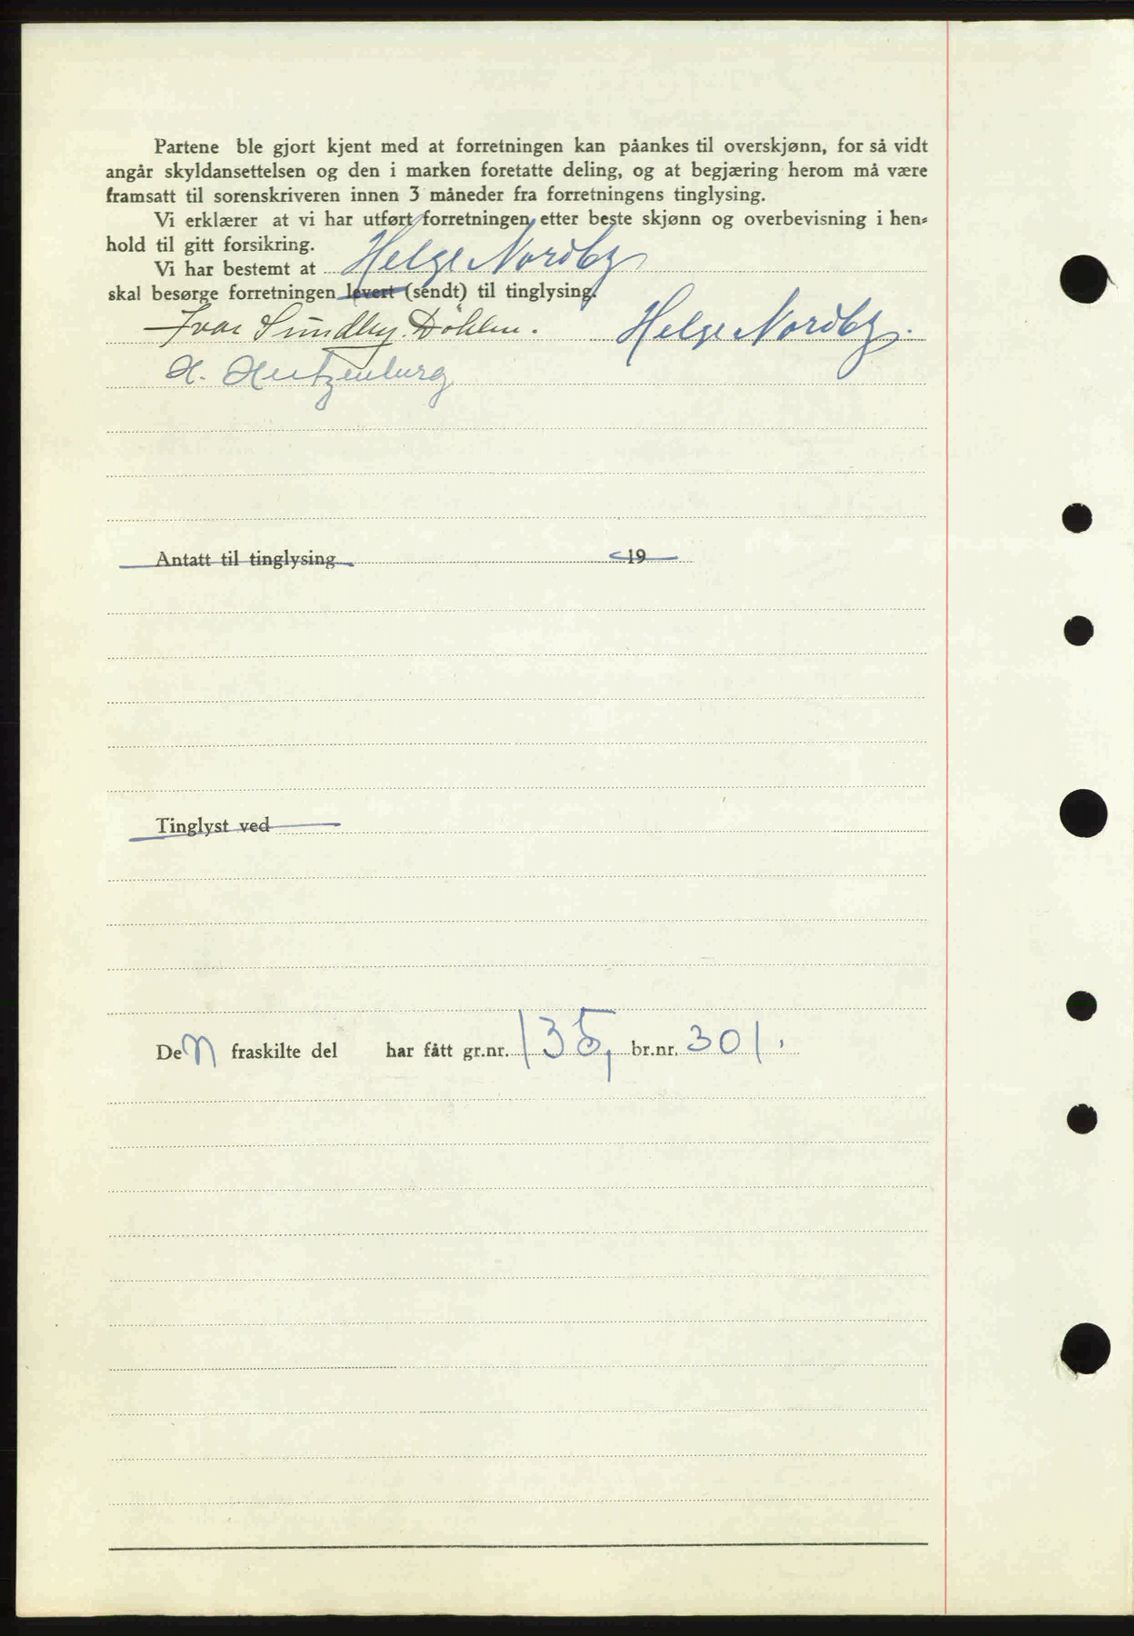 Partene ble gjort kjent med at forretningen kan påankes til overskjønn, for så vidt
angår skyldansettelsen og den i marken foretatte deling, og at begjæring herom må være
framsatt til sorenskriveren innen 3 måneder fra forretningens tinglysing.
Vi erklærer at vi har utført forretningen etter beste skjønn og overbevisning i hen=
hold til gitt forsikring.
Vi har bestemt at Helge Nordby
skal besørge forretningen levert (sendt) til tinglysing.
Ivar Sundby Døhlen. Helge Nordby.
H.
Antatt til tinglysing 19
Tinglyst ved
Den fraskilte del har fått gr.nr. 135, br.nr. 301.